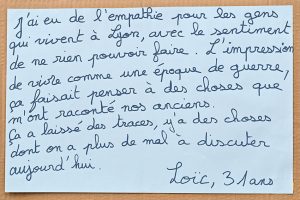 J'ai eu de l'empathie pour les gens
qui vivent à Lyon, avec le sentiment
de ne rien pouvoir faire. L'impression
de vivre comme une époque de guerre,
ça faisait penser à des choses que
m'ont raconté nos anciens.
Ça a laissé des traces, y'a des choses
dont on a plus de mal a discuter
aujourd'hui.
Loïc, 31 ans